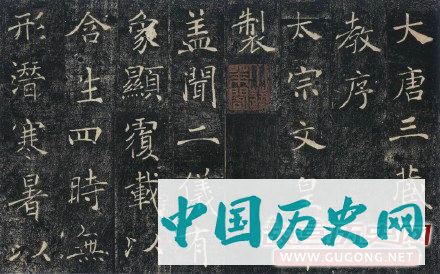 大唐三藏
教序
太宗文皇
製
盖聞二儀有
象顯覆載以
含生四時無
形潛寒暑以
中国历史网
WWW.GUGONG.NET